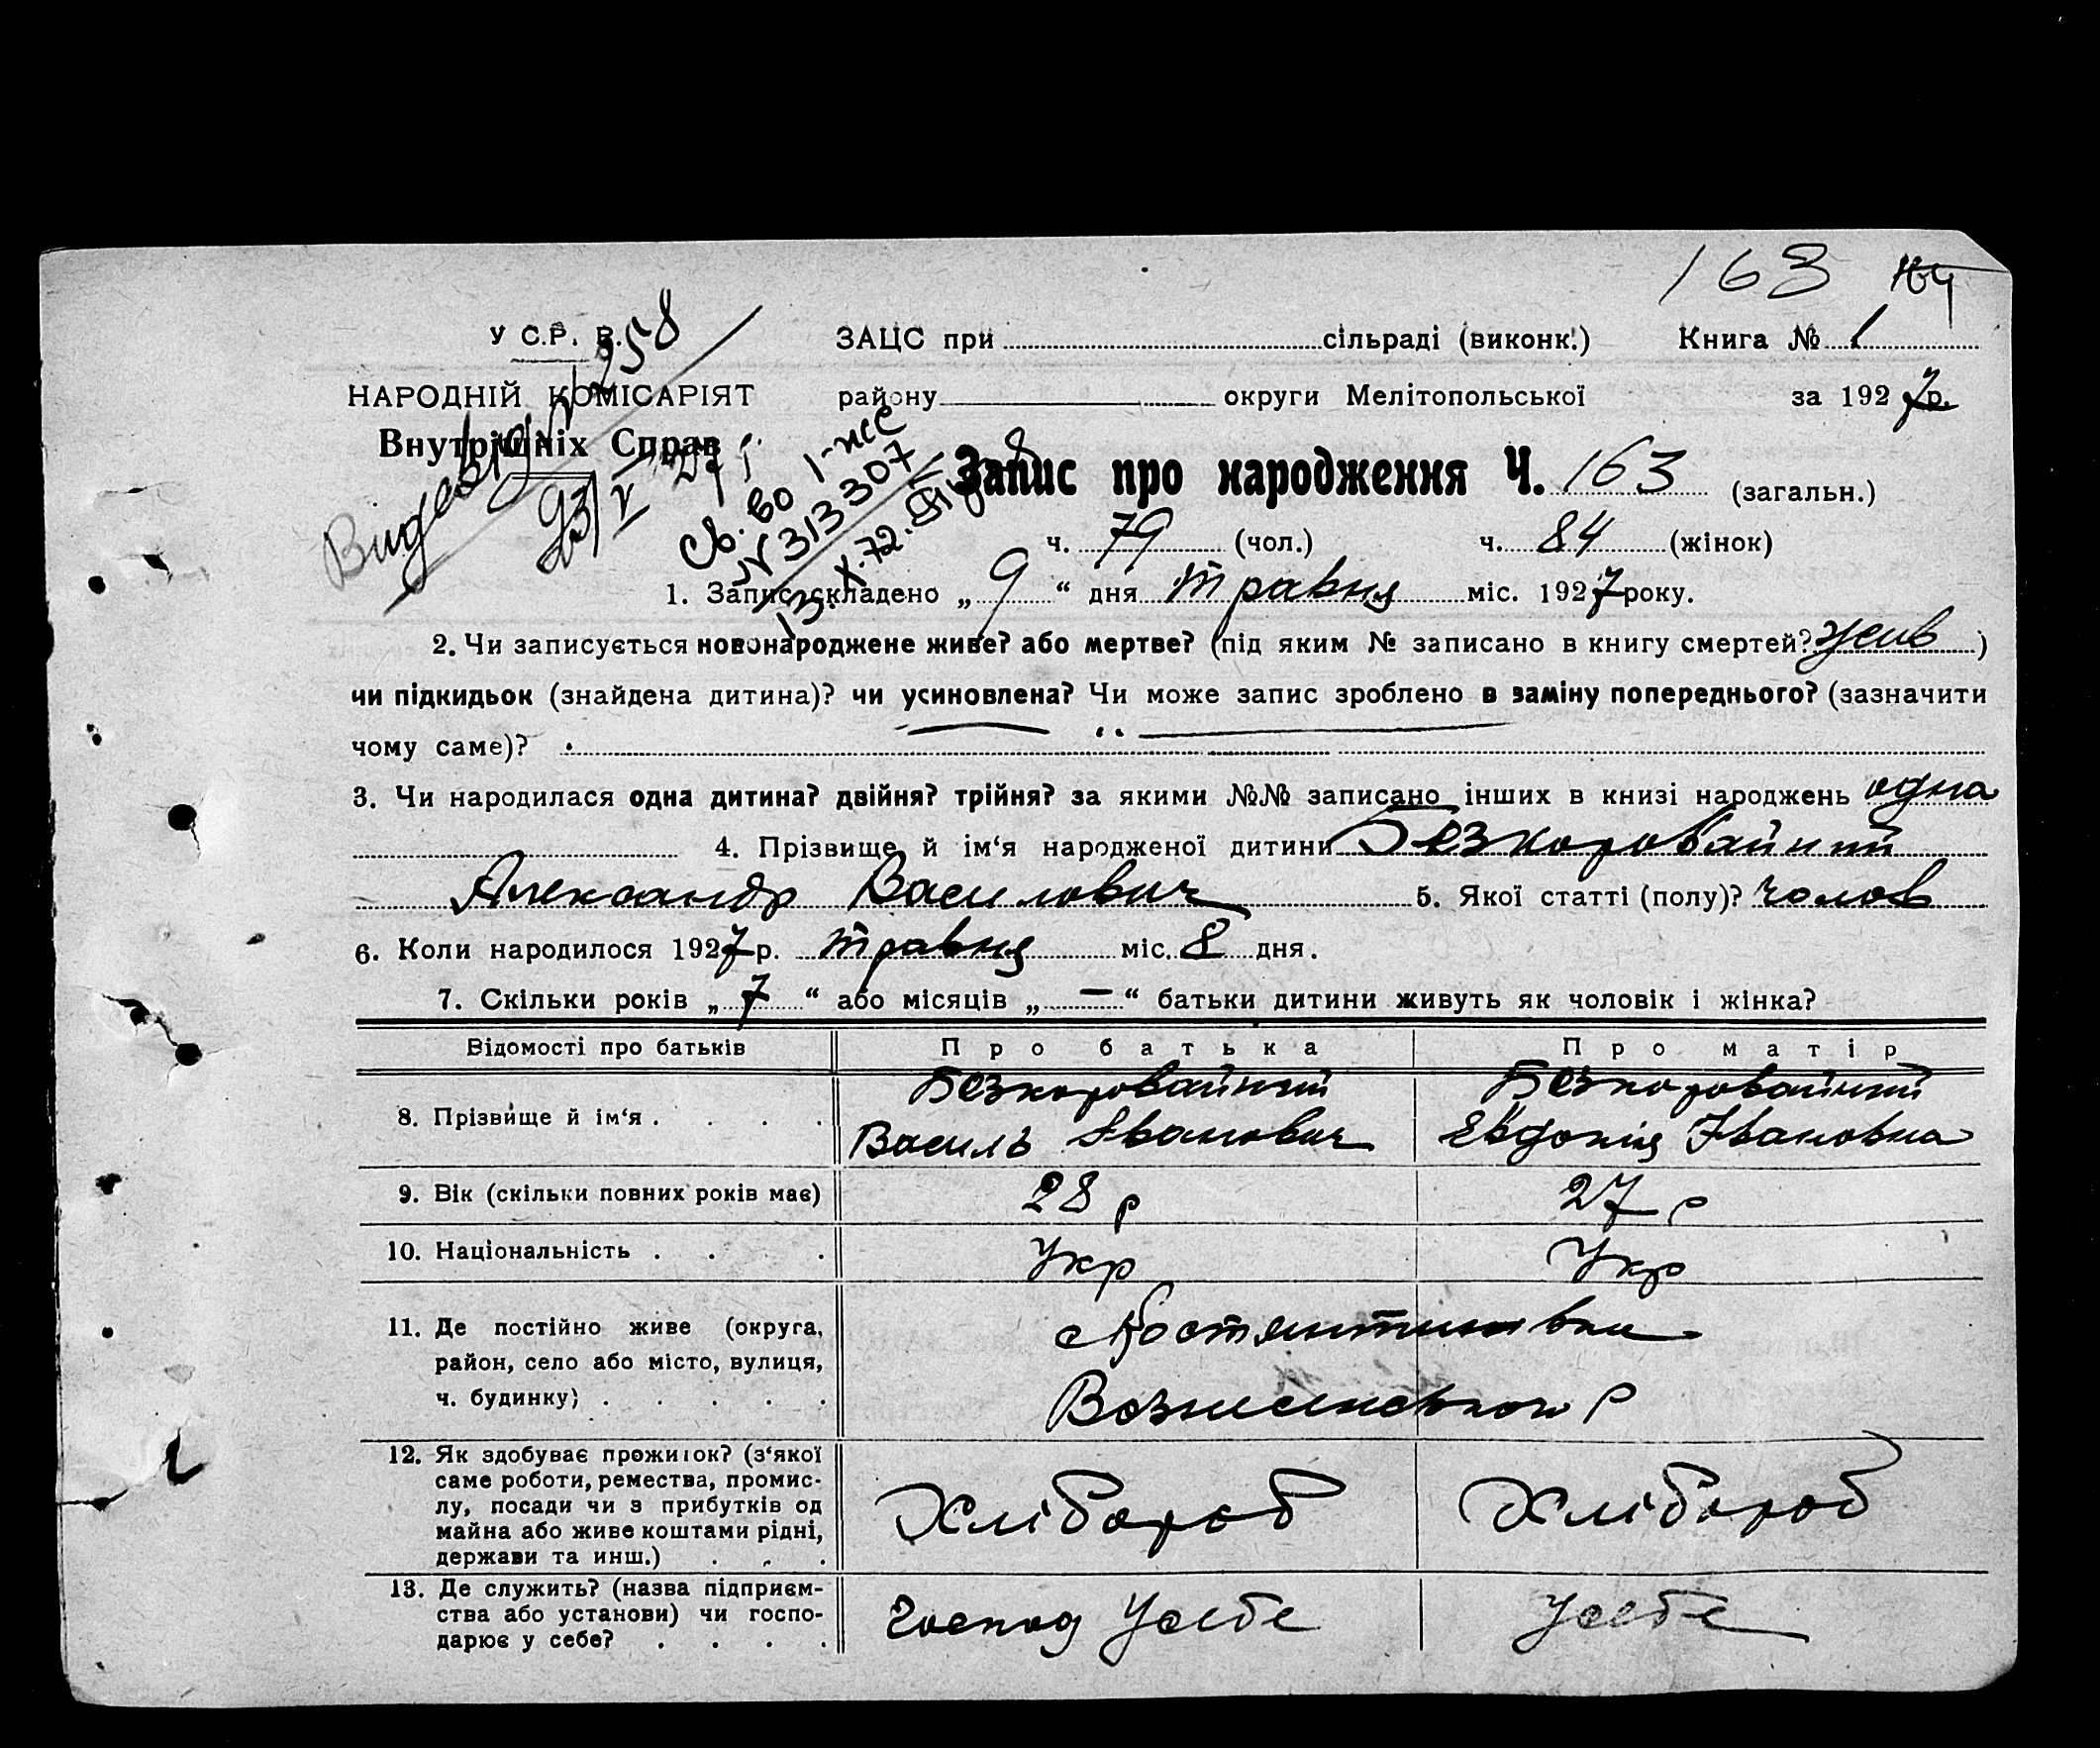 163 164
У С.Р. В.
ЗАЦС при сільраді (виконк.) Книга № 1
НАРОДНІЙ КОМІСАРІЯТ
району округи Мелітопольської за 1927р.
Внутрішніх Справ
258
23/V 27 р.
Св. во I-ЖС
№ 313307
13.X.72.
Запис про народження Ч. 163 (загальн.)
ч. 79 (чол.) ч. 84 (жінок)
1. Запис складено „ 9 “ дня травня міс. 1927 року.
2. Чи записується новонароджене живе? або мертве? (під яким № записано в книгу смертей? жив )
чи підкидьок (знайдена дитина)? чи усиновлена? Чи може запис зроблено в заміну попереднього? (зазначити
чому саме)?
3. Чи народилася одна дитина? двійня? трійня? за якими №№ записано інших в книзі народжень одна
4. Прізвище й ім‘я народженої дитини Безкоровайний
Александр Василович 5. Якої статті (полу)? чолов
6. Коли народилося 1927 р. травня міс. 8 дня.
7. Скільки років „ 7 “ або місяців „ — “ батьки дитини живуть як чоловік і жінка?
Відомості про батьків Про батька Про матір
8. Прізвище й ім‘я . . . . Безкоровайний Безкоровайний
Василь Іванович Евдокія Івановна
9. Вік (скільки повних років має) 28 р 27 р
10. Національність . . . Укр Укр
11. Де постійно живе (округа,
район, село або місто, вулиця,
ч. будинку) . . . . .
с Костянтинівки
Вознесенського Р
12. Як здобуває прожиток? (з‘якої
саме роботи, ремества, промис-
лу, посади чи з прибутків од
майна або живе коштами рідні,
держави та инш.) . . .
Хлібороб Хлібороб
13. Де служить? (назва підприєм-
ства або установи) чи госпо-
дарює у себе? . . . .
Господ Усебе Усебе